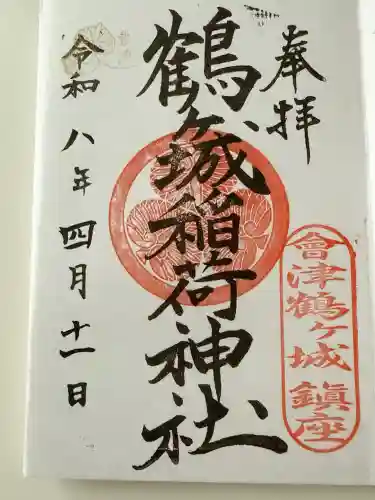 奉拝
會津鶴ヶ城鎮座
鶴ヶ城稲荷神社
令和八年四月十一日